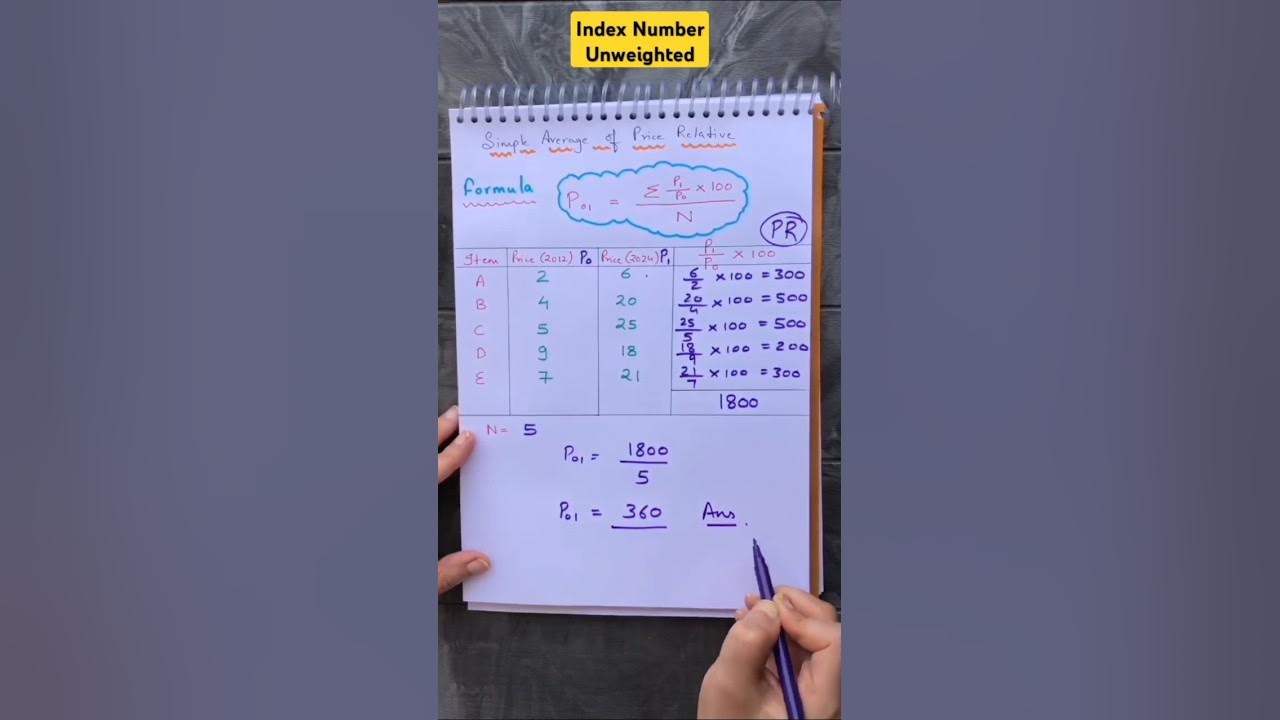 Index Number
Unweighted
Simple Average of Price Relative
formula P₀₁ = Σ P₁/P₀ × 100 / N
PR
Item Price (2012) P₀ Price (2024) P₁ P₁/P₀ × 100
A 2 6 6/2 × 100 = 300
B 4 20 20/4 × 100 = 500
C 5 25 25/5 × 100 = 500
D 9 18 18/9 × 100 = 200
E 7 21 21/7 × 100 = 300
1800
N = 5
P₀₁ = 1800/5
P₀₁ = 360 Ans.